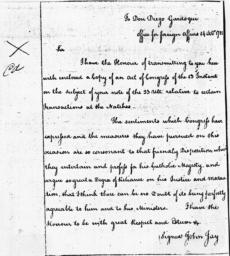 To Don Diego Gardoqui
Office for foreign Affairs 14 Octr 1785
Sir
I have the Honour of transmitting to you here
with enclosed a copy of an Act of Congress of the 13 Instant
on the subject of your note of the 23 Ult. relative to certain
Transactions at the Natches.
The sentiments which Congress have
expressed and the measures they have pursued on this
occasion are so consonant to that friendly Disposition which
they entertain and profess for his Catholic Majesty, and
argue so great a Degree of Reliance on his Justice and
that I think there can be no Doubt of its being perfectly
agreeable to him and to his Ministers. I have the
Honour to be with great Respect and Esteem &c.
(signed) John Jay